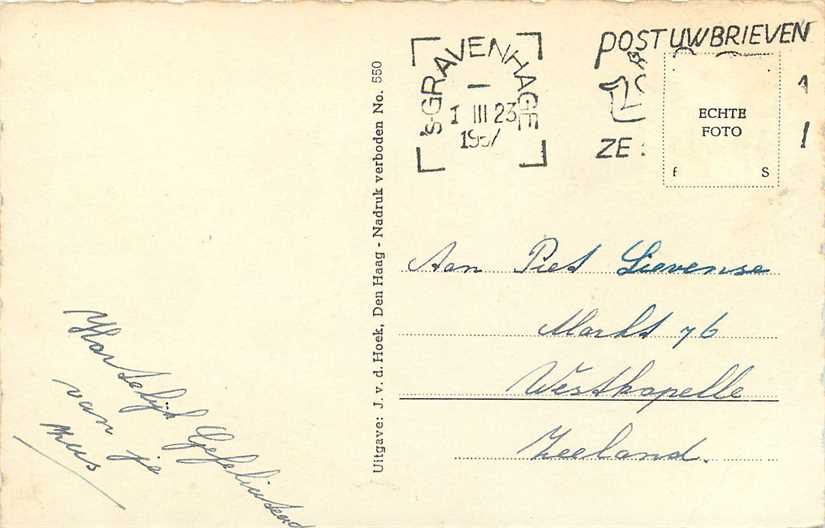 Hartelijk Gefeliciteerd
van je
zus
Uitgave: J. v. d. Hoek, Den Haag - Nadruk verboden No. 550
's-GRAVENHAGE
1 III 23
1957
POST UW BRIEVEN
ZE
ECHTE
FOTO
f S
Aan Piet Lievense
Markt 76
Westkapelle
Zeeland.